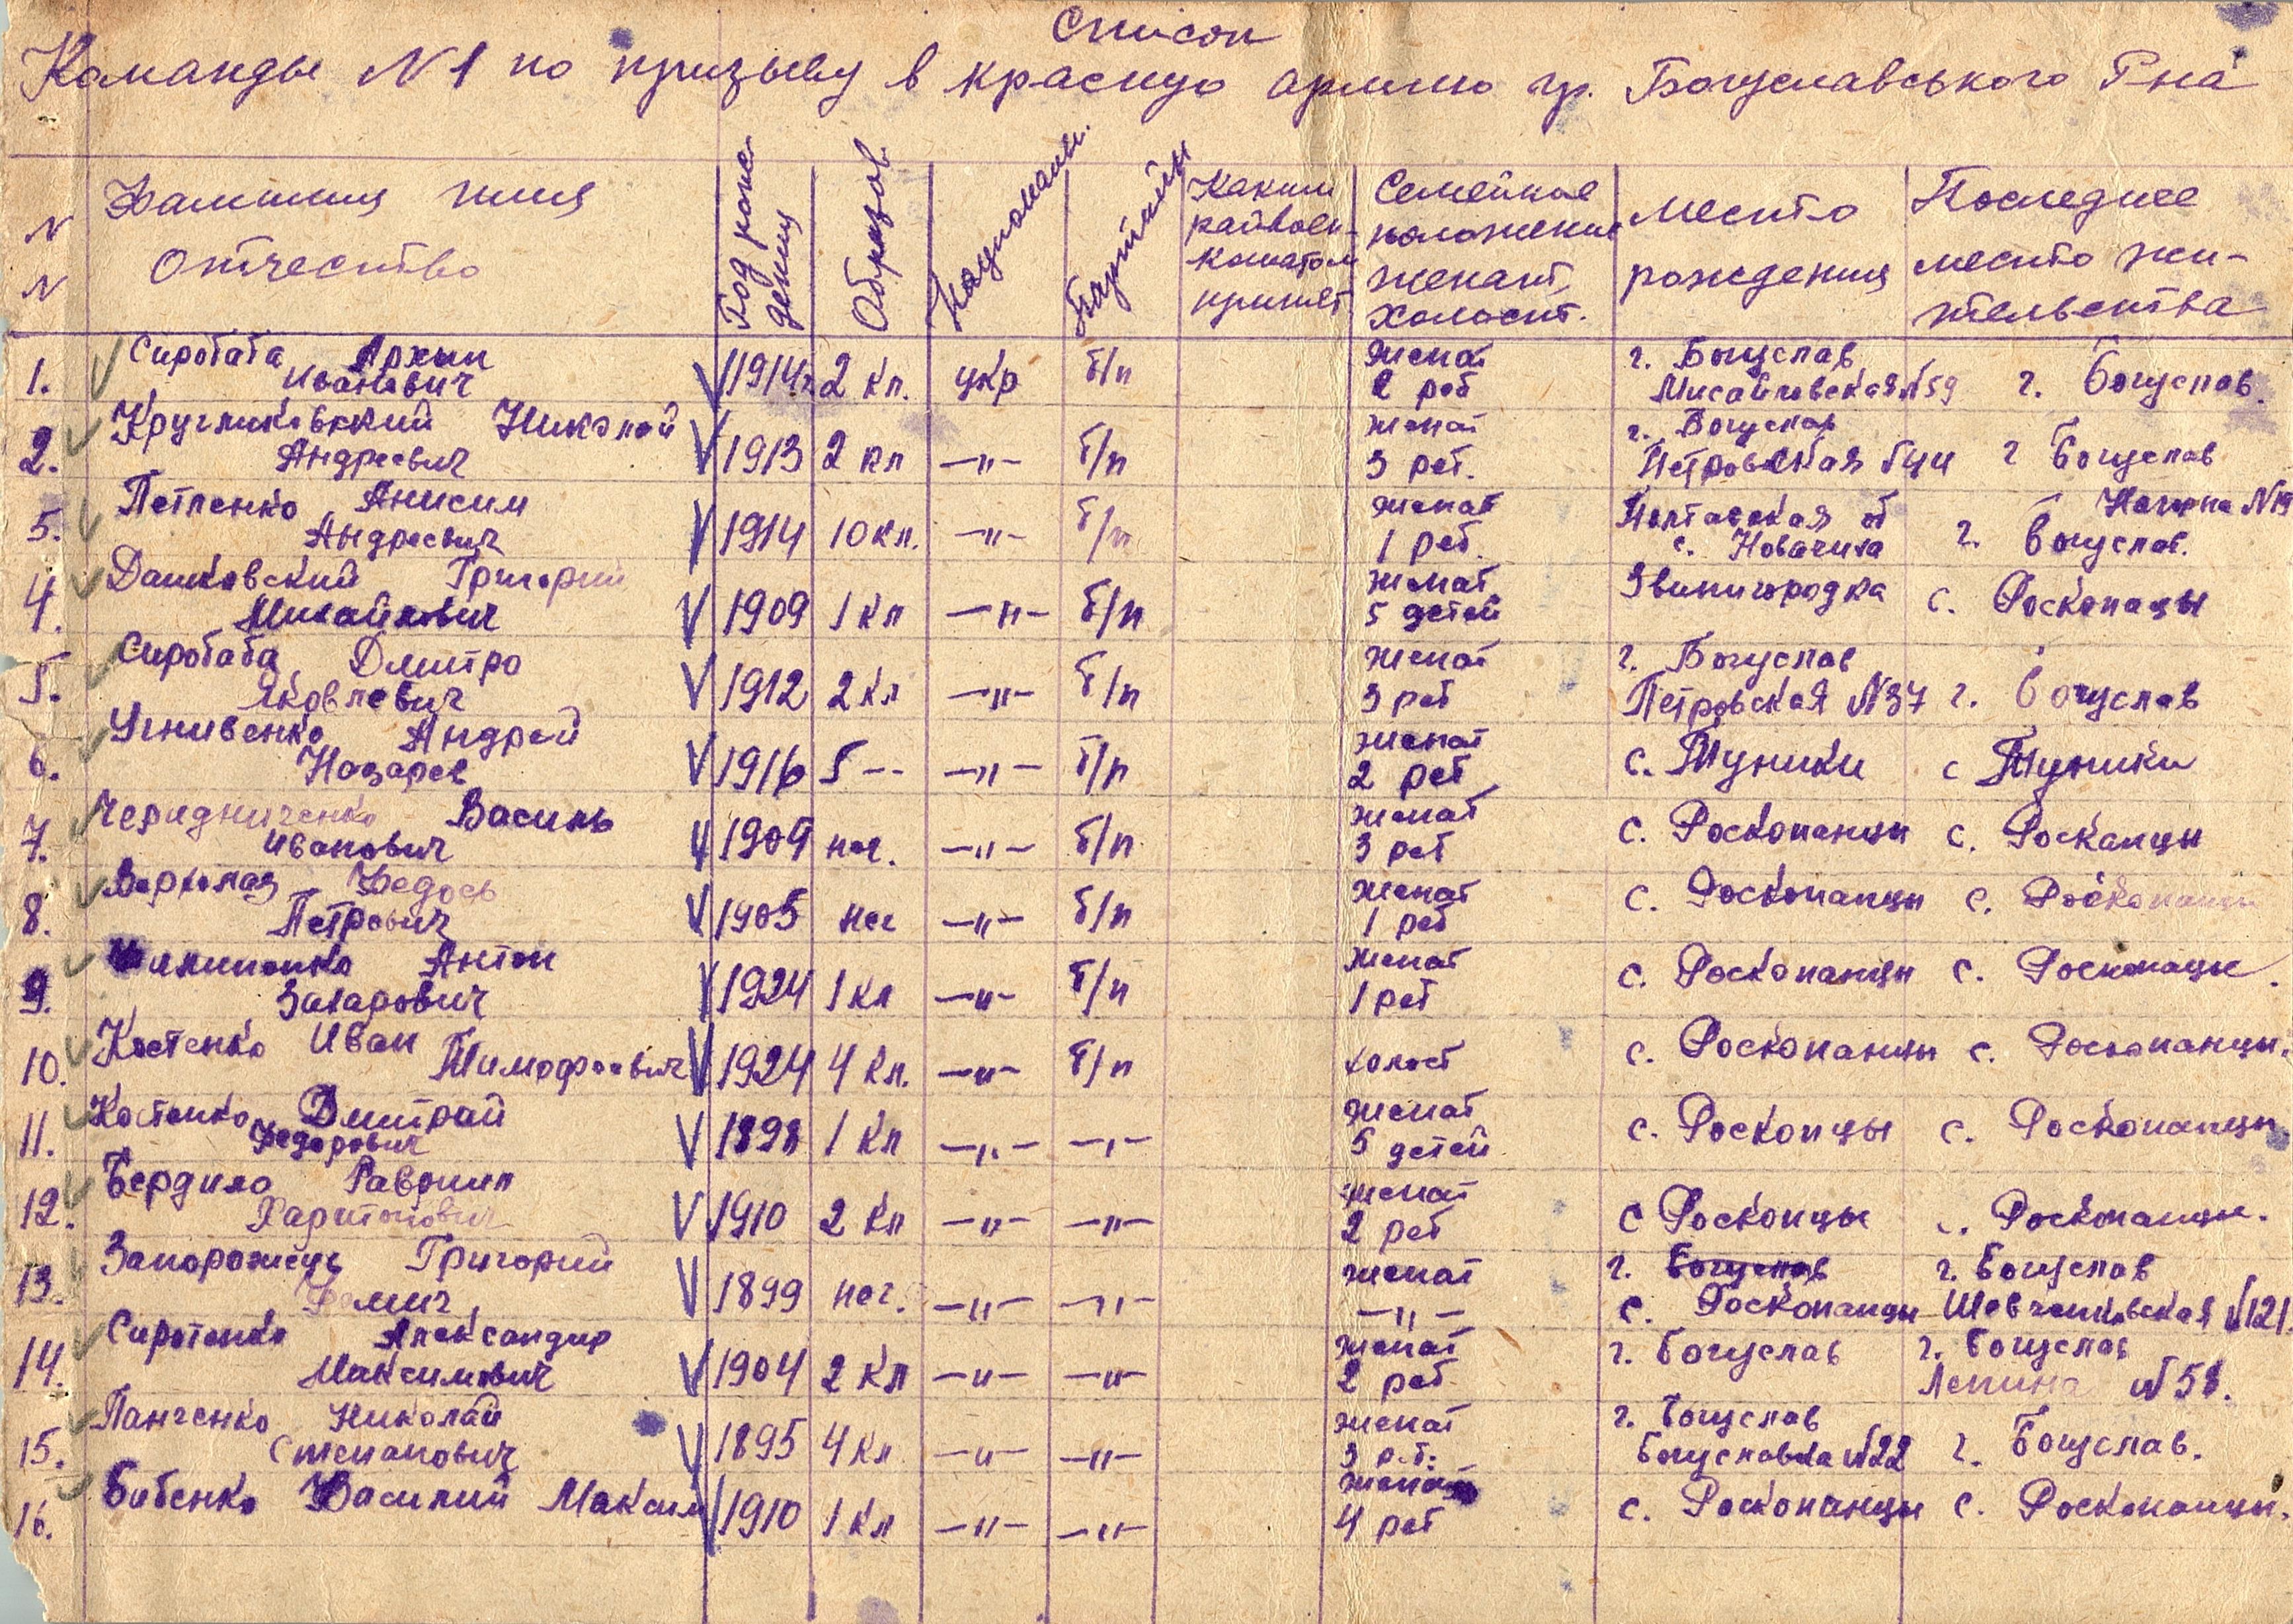 Список
Команды N1 по призыву в красную армию гр. Богуславського Р-на
N N
Фамилия имя
Отчество
Год рождения
Образов.
Националн.
Партийн
Каким
райвоен-
коматом
призват
Семейное
положение
женат,
холост.
Место
рождения
Последнее
место жи-
тельства
1. Сиробаба Архип Иванович 1914г. 2 кл. укр б/п женат 2 реб г. Богуслав Мисайловская N59 г. Богуслав.
2. Кругликовский Николай Андреевич 1913 2 кл —"— б/п женат 3 реб. г. Богуслав Петровская N44 г Богуслав
5. Петленко Анисим Андреевич 1914 10 кл. —"— б/п женат 1 реб. Полтавская об с. Новачиха г. Богуслав. Нагорна N19
4. Дашковский Григорий Михайлович 1909 1 кл —"— б/п женат 5 детей Звинигородка с. Роскопацы
5. Сиробаба Дмитро Яковлевич 1912 2 кл —"— б/п женат 3 реб г. Богуслав Петровская N37 г. Богуслав
6. Угнивенко Андрей Назарев 1916 5 -- —"— б/п женат 2 реб с. Туники с Туники
7. Чередниченко Василь Иванович 1909 нег. —"— б/п женат 3 реб с. Роскопанцы с. Роскапцы
8. Верхолаз Федось Петрович 1905 нег —"— б/п женат 1 реб с. Роскопанцы с. Роскопанцы
9. Антон Захарович 1924 1 кл —"— б/п женат 1 реб с. Роскопанцы с. Роскопацы.
10. Костенко Иван Тимофеевич 1924 4 кл. —"— б/п холост с. Роскопанцы с. Роскопанцы.
11. Костенко Дмитрий Федорович 1898 1 кл —"— —"— женат 5 детей с. Роскопцы с. Роскопанцы
12. Бердило Гавриил Харитонович 1910 2 кл —"— —"— женат 2 реб с Роскопцы с. Роскопанцы.
13. Запорожець Григорий Фомич 1899 нег. —"— —"— женат —"— г. Богуслав с. Роскопанцы г. Богуслав Шевченковская N121.
14. Сиротенко Александир Максимович 1904 2 кл —"— —"— женат 2 реб г. Богуслав г. Богуслав Ленина N58.
15. Панченко Николай Степанович 1895 4 кл —"— —"— женат 3 реб. г. Богуслав Богуславка N22 г. Богуслав.
16. Бабенко Василий Максим 1910 1 кл —"— —"— женат 4 реб с. Роскопанцы с. Роскопанцы.